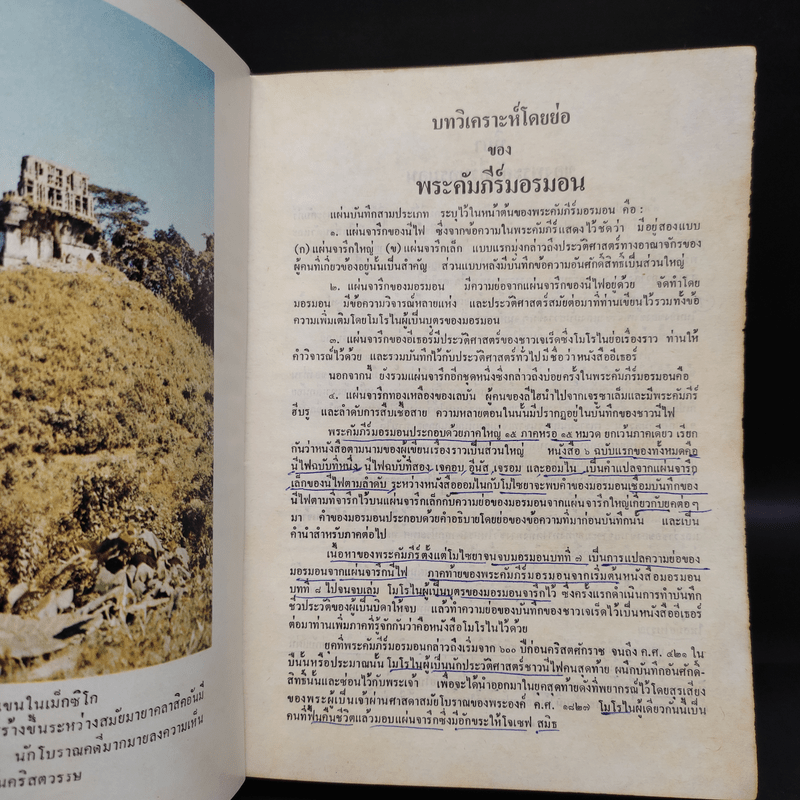 เขนในเม็กซิโก
ร้างขึ้นระหว่างสมัยมายาคลาสิคอันมี
นักโบราณคดีมากมายลงความเห็น
นคริสตวรรษ
บทวิเคราะห์โดยย่อ
ของ
พระคัมภีร์มอรมอน
แผ่นบันทึกสามประเภท ระบุไว้ในหน้าต้นของพระคัมภีร์มอรมอน คือ :
๑. แผ่นจารึกของนีไฟ ซึ่งจากข้อความในพระคัมภีร์แสดงไว้ชัดว่า มีอยู่สองแบบ
(ก) แผ่นจารึกใหญ่ (ข) แผ่นจารึกเล็ก แบบแรกมุ่งกล่าวถึงประวัติศาสตร์ทางอาณาจักรของ
ผู้คนที่เกี่ยวข้องอยู่นั้นเป็นสำคัญ ส่วนแบบหลังมีบันทึกข้อความอันศักดิ์สิทธิ์เป็นส่วนใหญ่
๒. แผ่นจารึกของมอรมอน มีความย่อจากแผ่นจารึกของนีไฟอยู่ด้วย จัดทำโดย
มอรมอน มีข้อความวิจารณ์หลายแห่ง และประวัติศาสตร์สมัยต่อมาที่ท่านเขียนไว้รวมทั้งข้อ
ความเพิ่มเติมโดยโมโรไนผู้เป็นบุตรของมอรมอน
๓. แผ่นจารึกของอีเธอร์มีประวัติศาสตร์ของชาวเจเร็ดซึ่งโมโรไนย่อเรื่องราว ท่านให้
คำวิจารณ์ไว้ด้วย และรวมบันทึกไว้กับประวัติศาสตร์ทั่วไป มีชื่อว่าหนังสืออีเธอร์
นอกจากนี้ ยังรวมแผ่นจารึกอีกชุดหนึ่งซึ่งกล่าวถึงบ่อยครั้งในพระคัมภีร์มอรมอนคือ
๔. แผ่นจารึกทองเหลืองของเลบัน ผู้คนของลีไฮนำไปจากเจรูซาเล็มและมีพระคัมภีร์
ฮีบรู และลำดับการสืบเชื้อสาย ความหลายตอนในนั้นมีปรากฏอยู่ในบันทึกของชาวนีไฟ
พระคัมภีร์มอรมอนประกอบด้วยภาคใหญ่ ๑๕ ภาคหรือ ๑๕ หมวด ยกเว้นภาคเดียว เรียก
กันว่าหนังสือตามนามของผู้เขียนเรื่องราวเป็นส่วนใหญ่ หนังสือ ๖ ฉบับแรกของทั้งหมดคือ
นีไฟฉบับที่หนึ่ง นีไฟฉบับที่สอง เจคอบ อีนัส เจรอม และออมไน เป็นคำแปลจากแผ่นจารึก
เล็กของนีไฟตามลำดับ ระหว่างหนังสือออมไนกับโมไซยาจะพบคำของมอรมอนเชื่อมบันทึกของ
นีไฟตามที่จารึกไว้บนแผ่นจารึกเล็กกับความย่อของมอรมอนจากแผ่นจารึกใหญ่เกี่ยวกับยุคต่อ ๆ
มา คำของมอรมอนประกอบด้วยคำอธิบายโดยย่อของข้อความที่มาก่อนบันทึกนั้น และเป็น
คำนำสำหรับภาคต่อไป
เนื้อหาของพระคัมภีร์ตั้งแต่โมไซยาจนจบมอรมอนบทที่ ๗ เป็นการแปลความย่อของ
มอรมอนจากแผ่นจารึกนีไฟ ภาคท้ายของพระคัมภีร์มอรมอนจากเริ่มต้นหนังสือมอรมอน
บทที่ ๘ ไปจนจบเล่ม โมโรไนผู้เป็นบุตรของมอรมอนจารึกไว้ ซึ่งครั้งแรกดำเนินการทำบันทึก
ชีวประวัติของผู้เป็นบิดาให้จบ แล้วทำความย่อของบันทึกของชาวเจเร็ดไว้เป็นหนังสืออีเธอร์
ต่อมาท่านเพิ่มภาคที่รู้จักกันว่าคือหนังสือโมโรไนไว้ด้วย
ยุคที่พระคัมภีร์มอรมอนกล่าวถึงเริ่มจาก ๖๐๐ ปีก่อนคริสตศักราช จนถึง ค.ศ. ๔๒๑ ใน
ปีนั้นหรือประมาณนั้น โมโรไนผู้เป็นนักประวัติศาสตร์ชาวนีไฟคนสุดท้าย ผนึกบันทึกอันศักดิ์-
สิทธิ์นั้นและซ่อนไว้กับพระเจ้า เพื่อจะได้นำออกมาในยุคสุดท้ายดังที่พยากรณ์ไว้โดยสุรเสียง
ของพระผู้เป็นเจ้าผ่านศาสดาสมัยโบราณของพระองค์ ค.ศ. ๑๘๒๗ โมโรไนผู้เดียวกันนี้เป็น
คนที่ฟื้นคืนชีวิตแล้วมอบแผ่นจารึกซึ่งมีอักขระให้โจเซฟ สมิธ